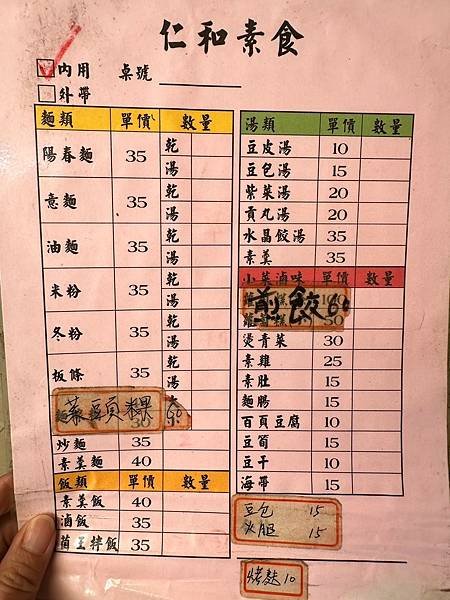 仁和素食
內用 桌號
外帶
麵類 單價 數量
陽春麵 35 乾
湯
意麵 35 乾
湯
油麵 35 乾
湯
米粉 35 乾
湯
冬粉 35 乾
湯
板條 35 乾
湯
菜頭粿 60
30
炒麵 35
素羹麵 40
飯類 單價 數量
素羹飯 40
滷飯 35
菌王拌飯 35
湯類 單價 數量
豆皮湯 10
豆包湯 15
紫菜湯 20
貢丸湯 20
水晶餃湯 35
素羹 35
小菜滷味 單價 數量
煎餃 60
50
燙青菜 30
素雞 25
素肚 15
麵腸 15
百頁豆腐 10
豆筍 15
豆干 10
海帶 15
豆包 15
火腿 15
烤麩 10